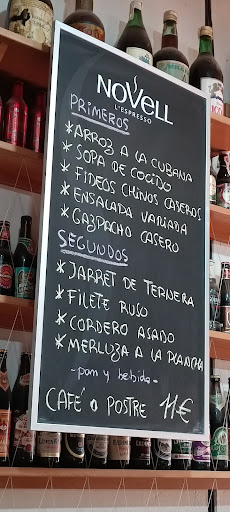 NOVELL
L'ESPRESSO
PRIMEROS
* ARROZ A LA CUBANA
* SOPA DE COCIDO
* FIDEOS CHINOS CASEROS
* ENSALADA VARIADA
* GAZPACHO CASERO
SEGUNDOS
* JARRET DE TERNERA
* FILETE RUSO
* CORDERO ASADO
* MERLUZA A LA PLANCHA
- pan y bebida -
CAFÉ O POSTRE 11€